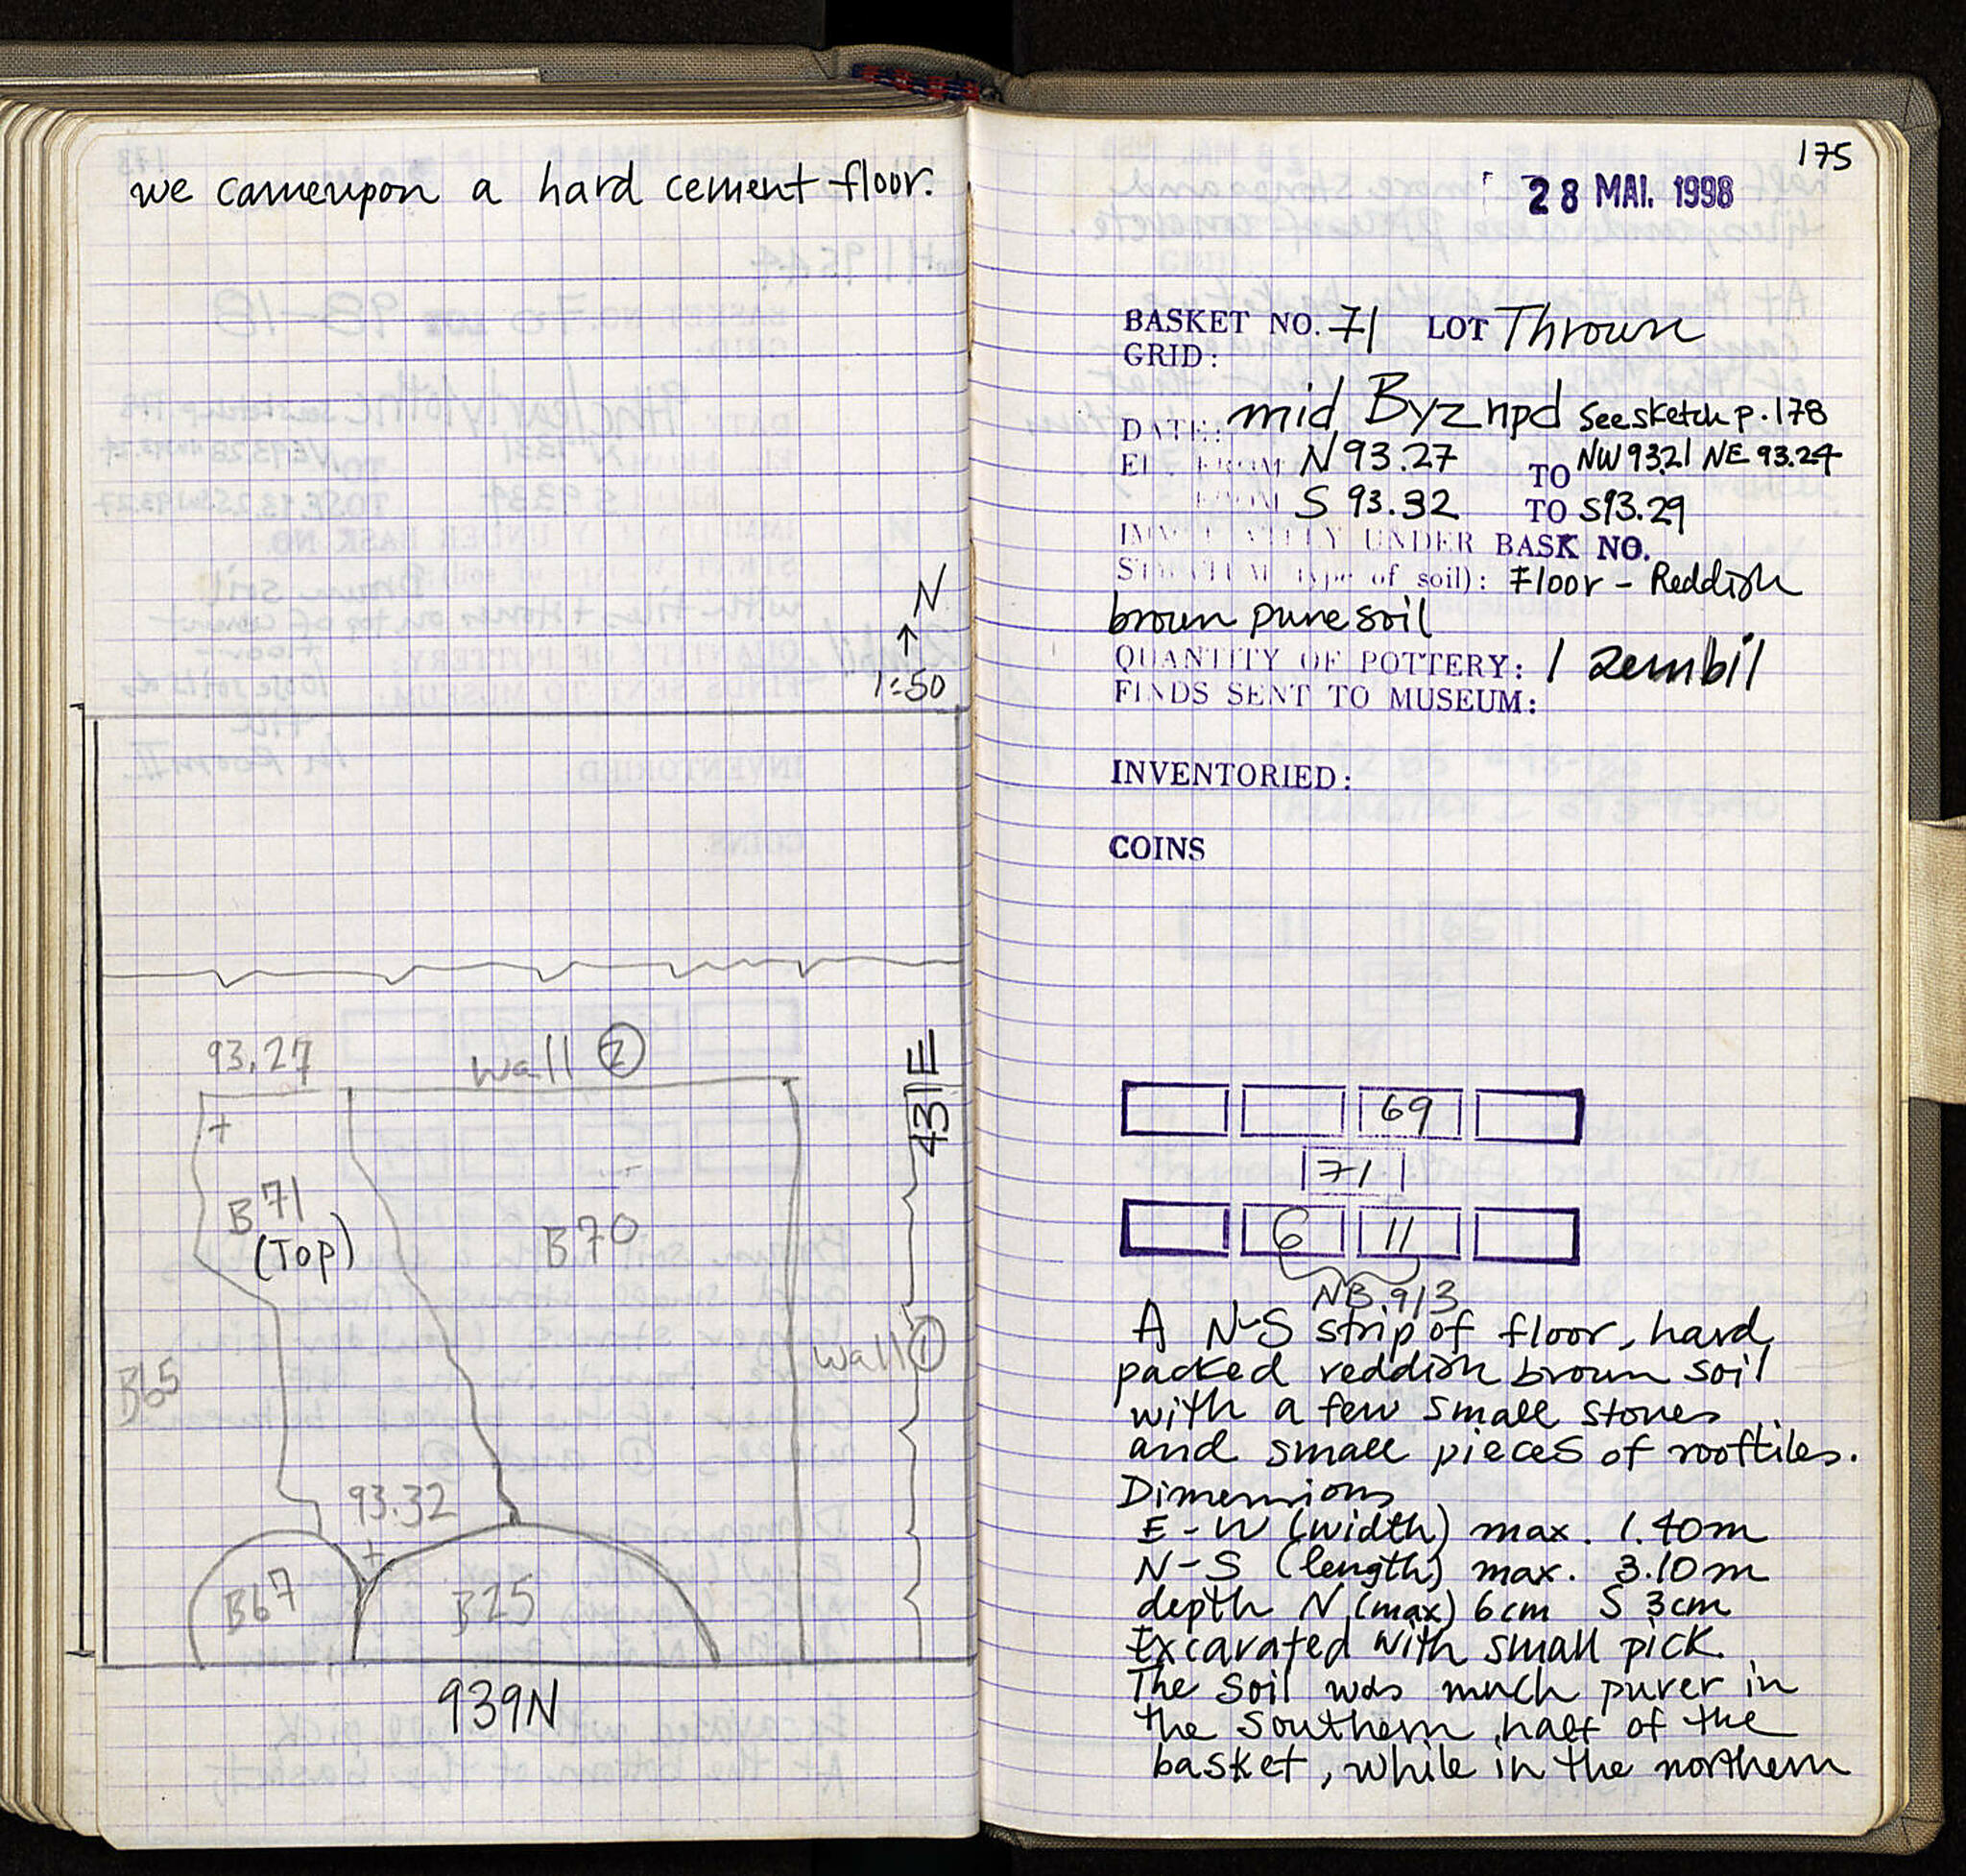 we cameupon a hard cement floor.
N
1:50
93.27
Wall ②
431E
+
B71
(Top)
B70
Wall ①
B65
93.32
+
B67
B25
939N
175
28 MAI. 1998
BASKET NO. 71 LOT Thrown
GRID:
DATE: mid Byz npd See sketch p. 178
EL. FROM N 93.27 TO NW 93.21 NE 93.24
FROM S 93.32 TO S93.29
IMMEDIATELY UNDER BASK NO.
STRATUM (type of soil): Floor - Reddish
brown pure soil
QUANTITY OF POTTERY: 1 zembil
FINDS SENT TO MUSEUM:
INVENTORIED:
COINS
69
71
6 11
NB 913
A N-S strip of floor, hard
packed reddish brown soil
with a few small stones
and small pieces of rooftiles.
Dimensions
E-W (width) max. 1.40m
N-S (length) max. 3.10m
depth N (max) 6cm S 3cm
Excavated with small pick.
The soil was much purer in
the southern half of the
basket, while in the northern